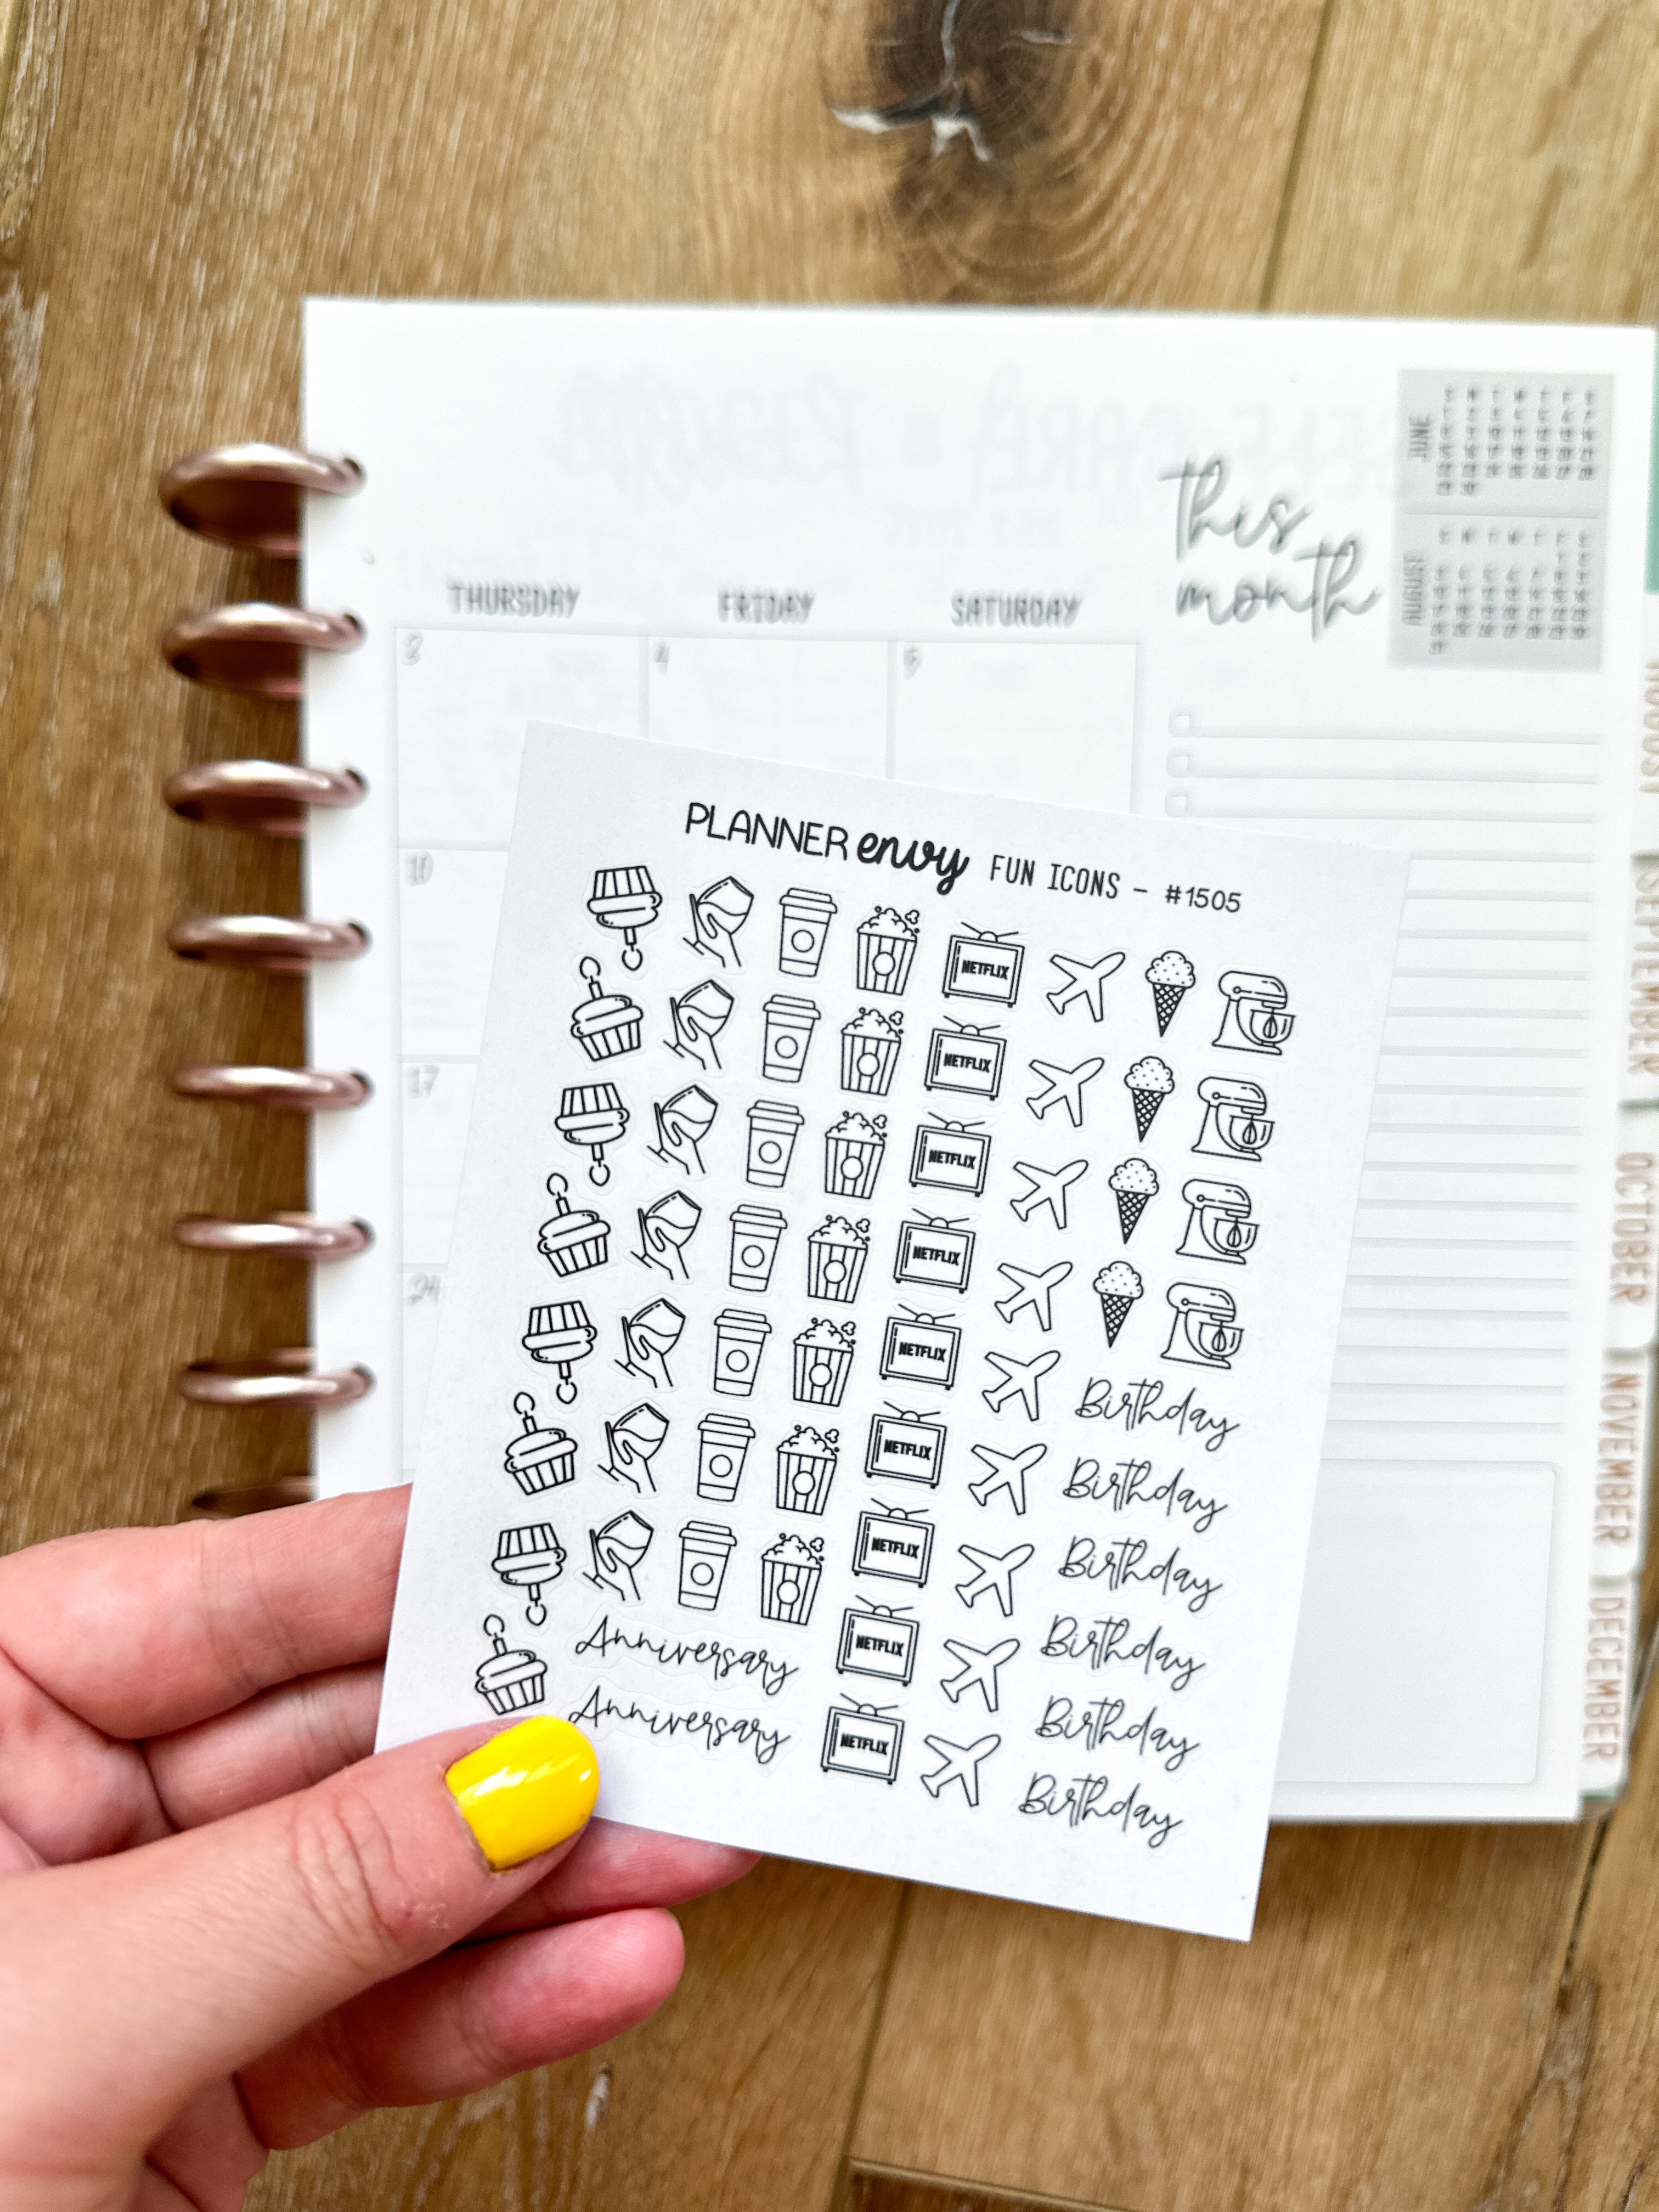 JUNE
AUGUST
this
month
THURSDAY
FRIDAY
SATURDAY
3
4
5
10
17
24
AUGUST
SEPTEMBER
OCTOBER
NOVEMBER
DECEMBER
PLANNER envy FUN ICONS - #1505
NETFLIX
NETFLIX
NETFLIX
NETFLIX
NETFLIX
NETFLIX
NETFLIX
NETFLIX
NETFLIX
Birthday
Birthday
Birthday
Birthday
Birthday
Birthday
Anniversary
Anniversary